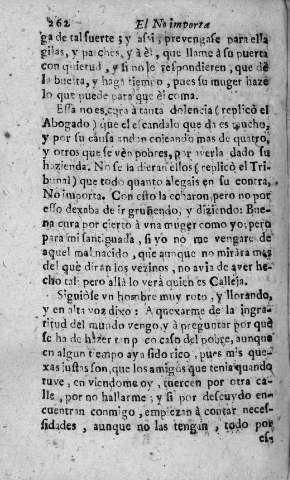 262 El No importa
ga de tal suerte; y assi, prevengase para ella
gilas, y parches, y à èl, que llame à su puerta
con quietud, y si no le respondieren, que dè
la buelta, y haga tiempo, pues su muger haze
lo que puede para que èl coma.
Essa no es cura à tanta dolencia (replicò el
Abogado) que el escandalo que dà es mucho,
y por su causa andan cojeando mas de quatro,
y otros que se vèn pobres, por averla dado su
hazienda. No se la dieran ellos (replicò el Tri-
bunal) que todo quanto alegais en su contra,
No importa. Con esto la echaron, pero no por
esso dexaba de ir gruñendo, y diziendo: Bue-
na cura por cierto à vna muger como yo; pero
para mi santiguada, si yo no me vengare de
aquel mal nacido, que aunque no mirára mas
del què diràn los vezinos, no avia de aver he-
cho tal; pero allà lo verà quien es Calleja.
Siguiòse vn hombre muy roto, y llorando,
y en alta voz dixo: A quexarme de la ingra-
titud del mundo vengo, y à preguntar por què
se ha de hazer tan p en caso del pobre, aunque
en algun tiempo aya sido rico, pues mis que-
xas justas son, que los amigos que tenia quando
tuve, en viendome oy, tuercen por otra ca-
lle, por no hallarme; y si por descuydo en-
cuentran conmigo, empiezan à contar neces-
sidades, aunque no las tengan, todo por
es-